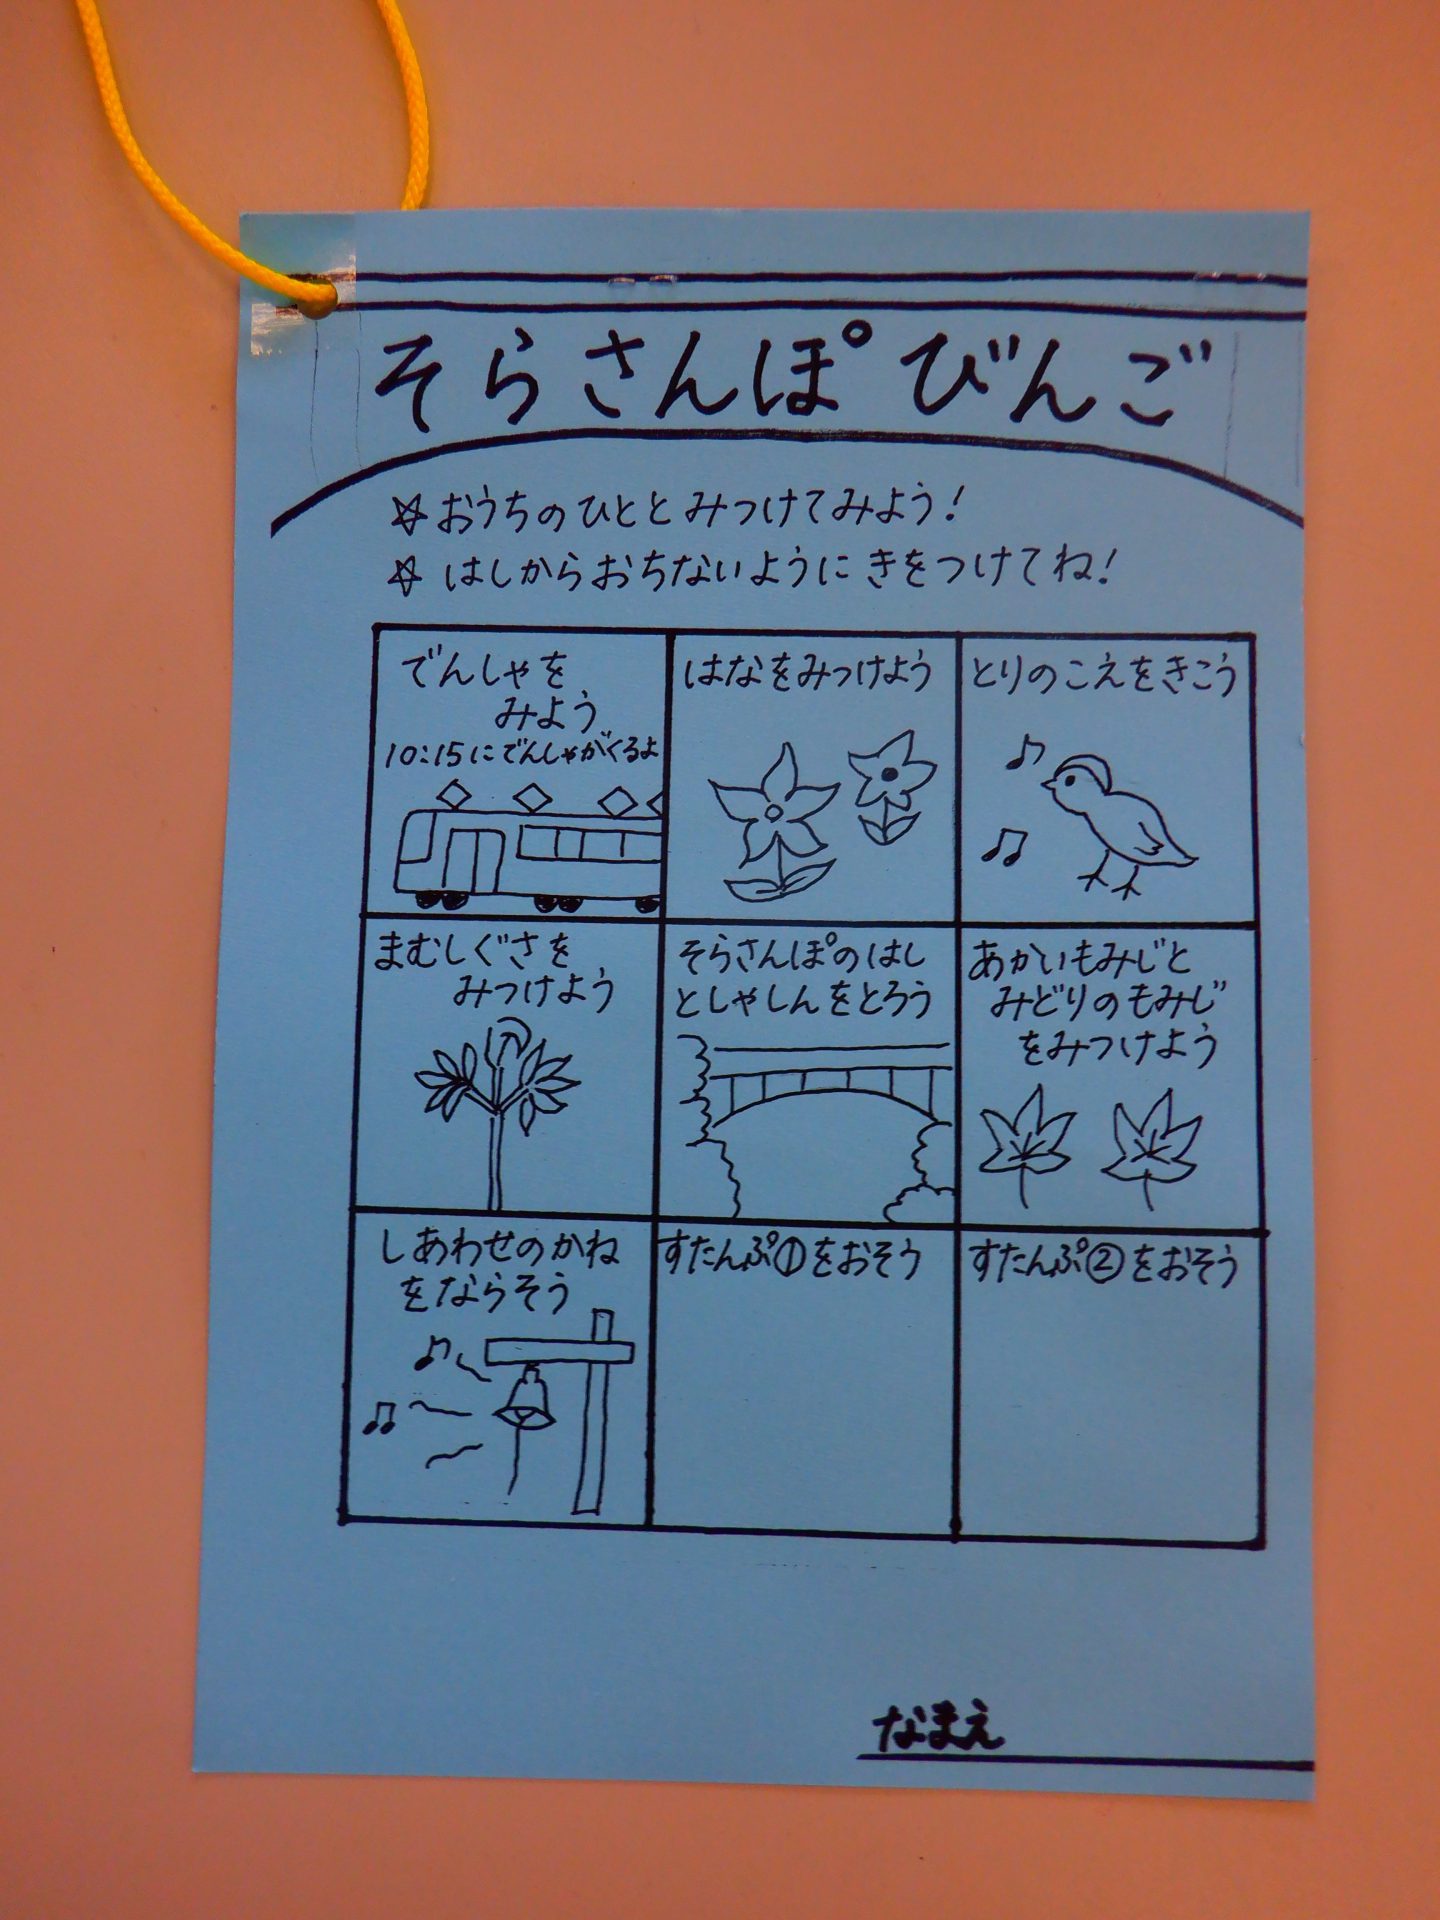 そらさんぽ びんご
☆おうちのひととみつけてみよう!
☆はしからおちないようにきをつけてね!
でんしゃを
みよう
10:15にでんしゃがくるよ
はなをみつけよう
とりのこえをきこう
まむしぐさを
みつけよう
そらさんぽのはし
としゃしんをとろう
あかいもみじと
みどりのもみじ
をみつけよう
しあわせのかね
をならそう
すたんぷ①をおそう
すたんぷ②をおそう
なまえ